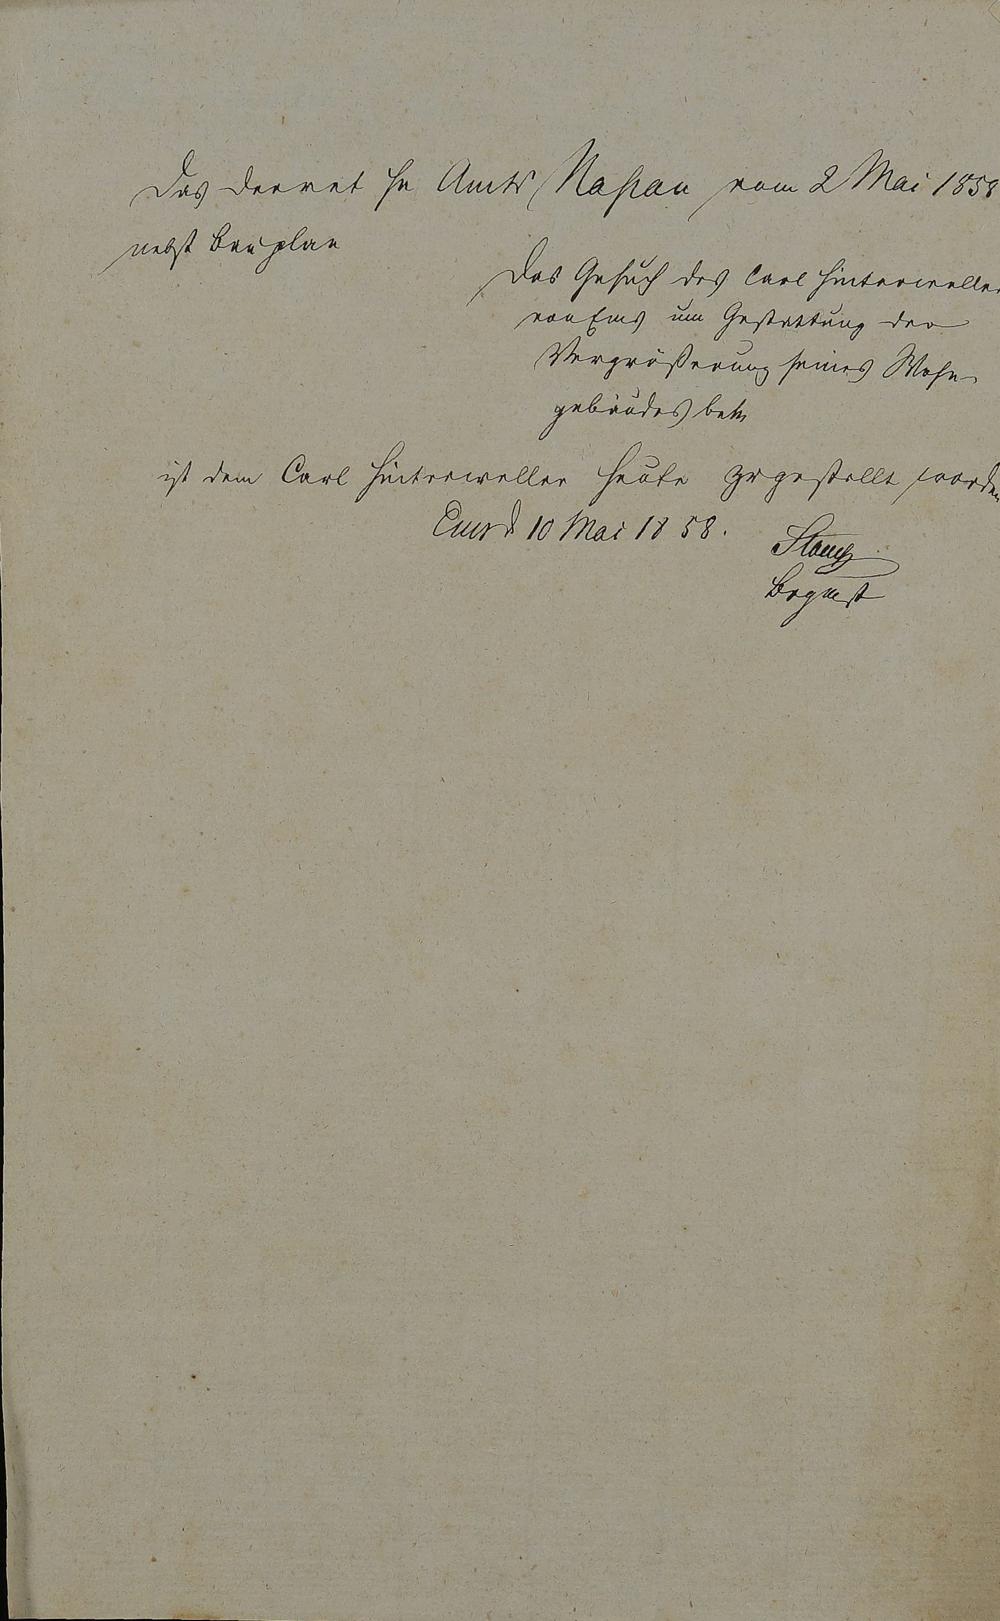 Das Decret Hz Amts Nassau vom 2 Mai 1858
nebst Bauplan
Das Gesuch des Carl Hinterweller
von Ems um Gestattung der
Vergrößerung seines Wohn-
gebäudes betr
ist dem Carl Hinterweller heute zugestellt worden
Ems d 10 Mai 1858.